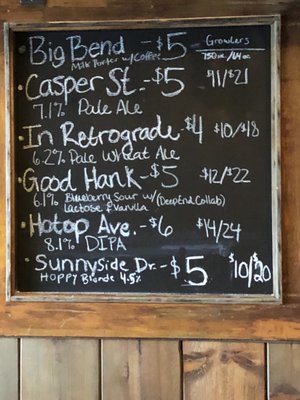 Big Bend - $5 Growlers
Milk Porter w/Coffee
Casper St. - $5 $11/$21
7.1% Pale Ale
In Retrograde - $4 $10/$18
6.2% Pale Wheat Ale
Good Hank - $5 $12/$22
6.1% Blueberry Sour w/ (DeepEnd Collab)
Lactose & Vanilla
Hotop Ave. - $6 $14/24
8.1% DIPA
Sunnyside Dr. - $5 $10/$20
Hoppy Blonde 4.5%